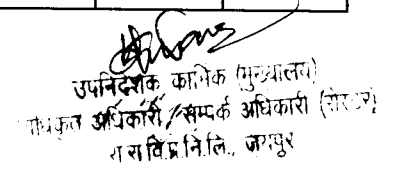 उपनिदेशक कार्मिक (मुख्यालय)
प्राधिकृत अधिकारी / सम्पर्क अधिकारी (रोस्टर)
रा.रा.वि.प्र.नि.लि., जयपुर